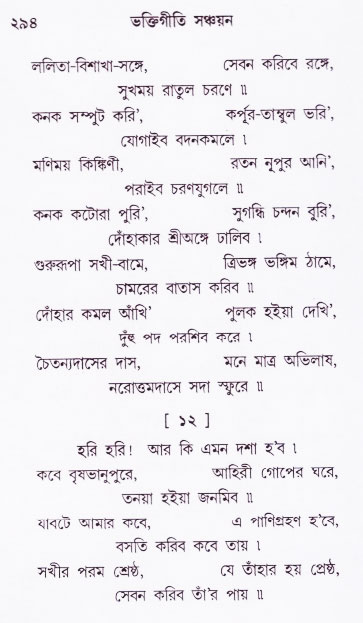 ২৯৪ ভক্তিগীতি সঞ্চয়ন
ললিতা-বিশাখা-সঙ্গে, সেবন করিবে রঙ্গে,
সুখময় রাতুল চরণে ॥
কনক সম্পুট করি’, কর্পূর-তাম্বুল ভরি’,
যোগাইব বদনকমলে ।
মণিময় কিঙ্কিণী, রতন নূপুর আনি’,
পরাইব চরণযুগলে ॥
কনক কটোরা পুরি’, সুগন্ধি চন্দন বুরি’,
দোঁহাকার শ্রীঅঙ্গে ঢালিব ।
গুরুরূপা সখী-বামে, ত্রিভঙ্গ ভঙ্গিম ঠামে,
চামরের বাতাস করিব ॥
দোঁহার কমল আঁখি’ পুলক হইয়া দেখি’,
দুঁহু পদ পরশিব করে ।
চৈতন্যদাসের দাস, মনে মাত্র অভিলাষ,
নরোত্তমদাসে সদা স্ফুরে ॥
[ ১২ ]
হরি হরি! আর কি এমন দশা হ’ব ।
কবে বৃষভানুপুরে, আহিরী গোপের ঘরে,
তনয়া হইয়া জনমিব ॥
যাবটে আমার কবে, এ পাণিগ্রহণ হ’বে,
বসতি করিব কবে তায় ।
সখীর পরম শ্রেষ্ঠ, যে তাঁহার হয় প্রেষ্ঠ,
সেবন করিব তাঁ’র পায় ॥